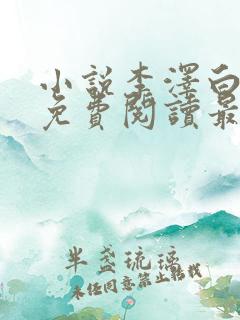 小說李澤白
免費閱讀最
半盞琉璃
未经同意禁止转载